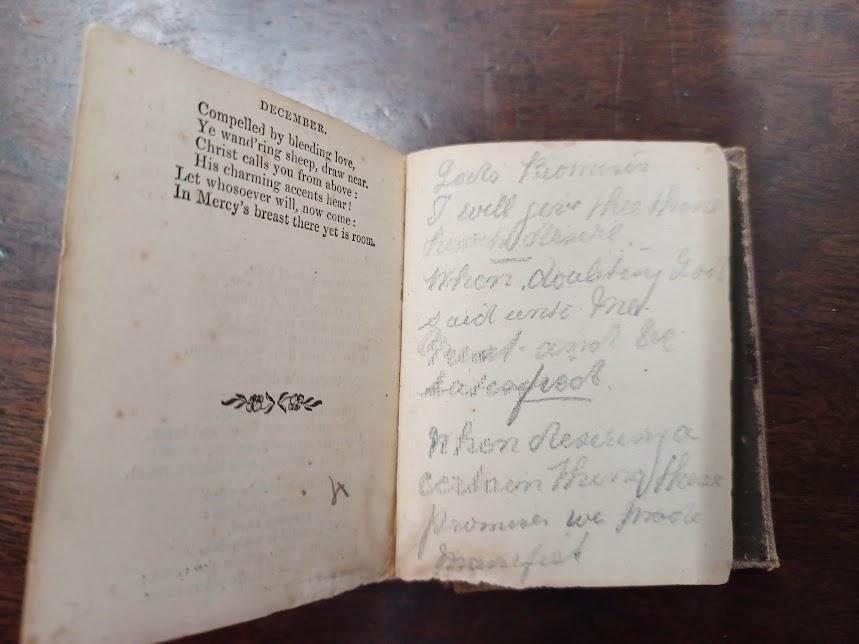 DECEMBER.
Compelled by bleeding love,
Ye wand'ring sheep, draw near.
Christ calls you from above:
His charming accents hear!
Let whosoever will, now come:
In Mercy's breast there yet is room.
Gods Promises
I will give thee thine
hearts desire.
When doubting God
said unto Me.
Trust and be
When desiring a
certain thing these
promises we made
manifest